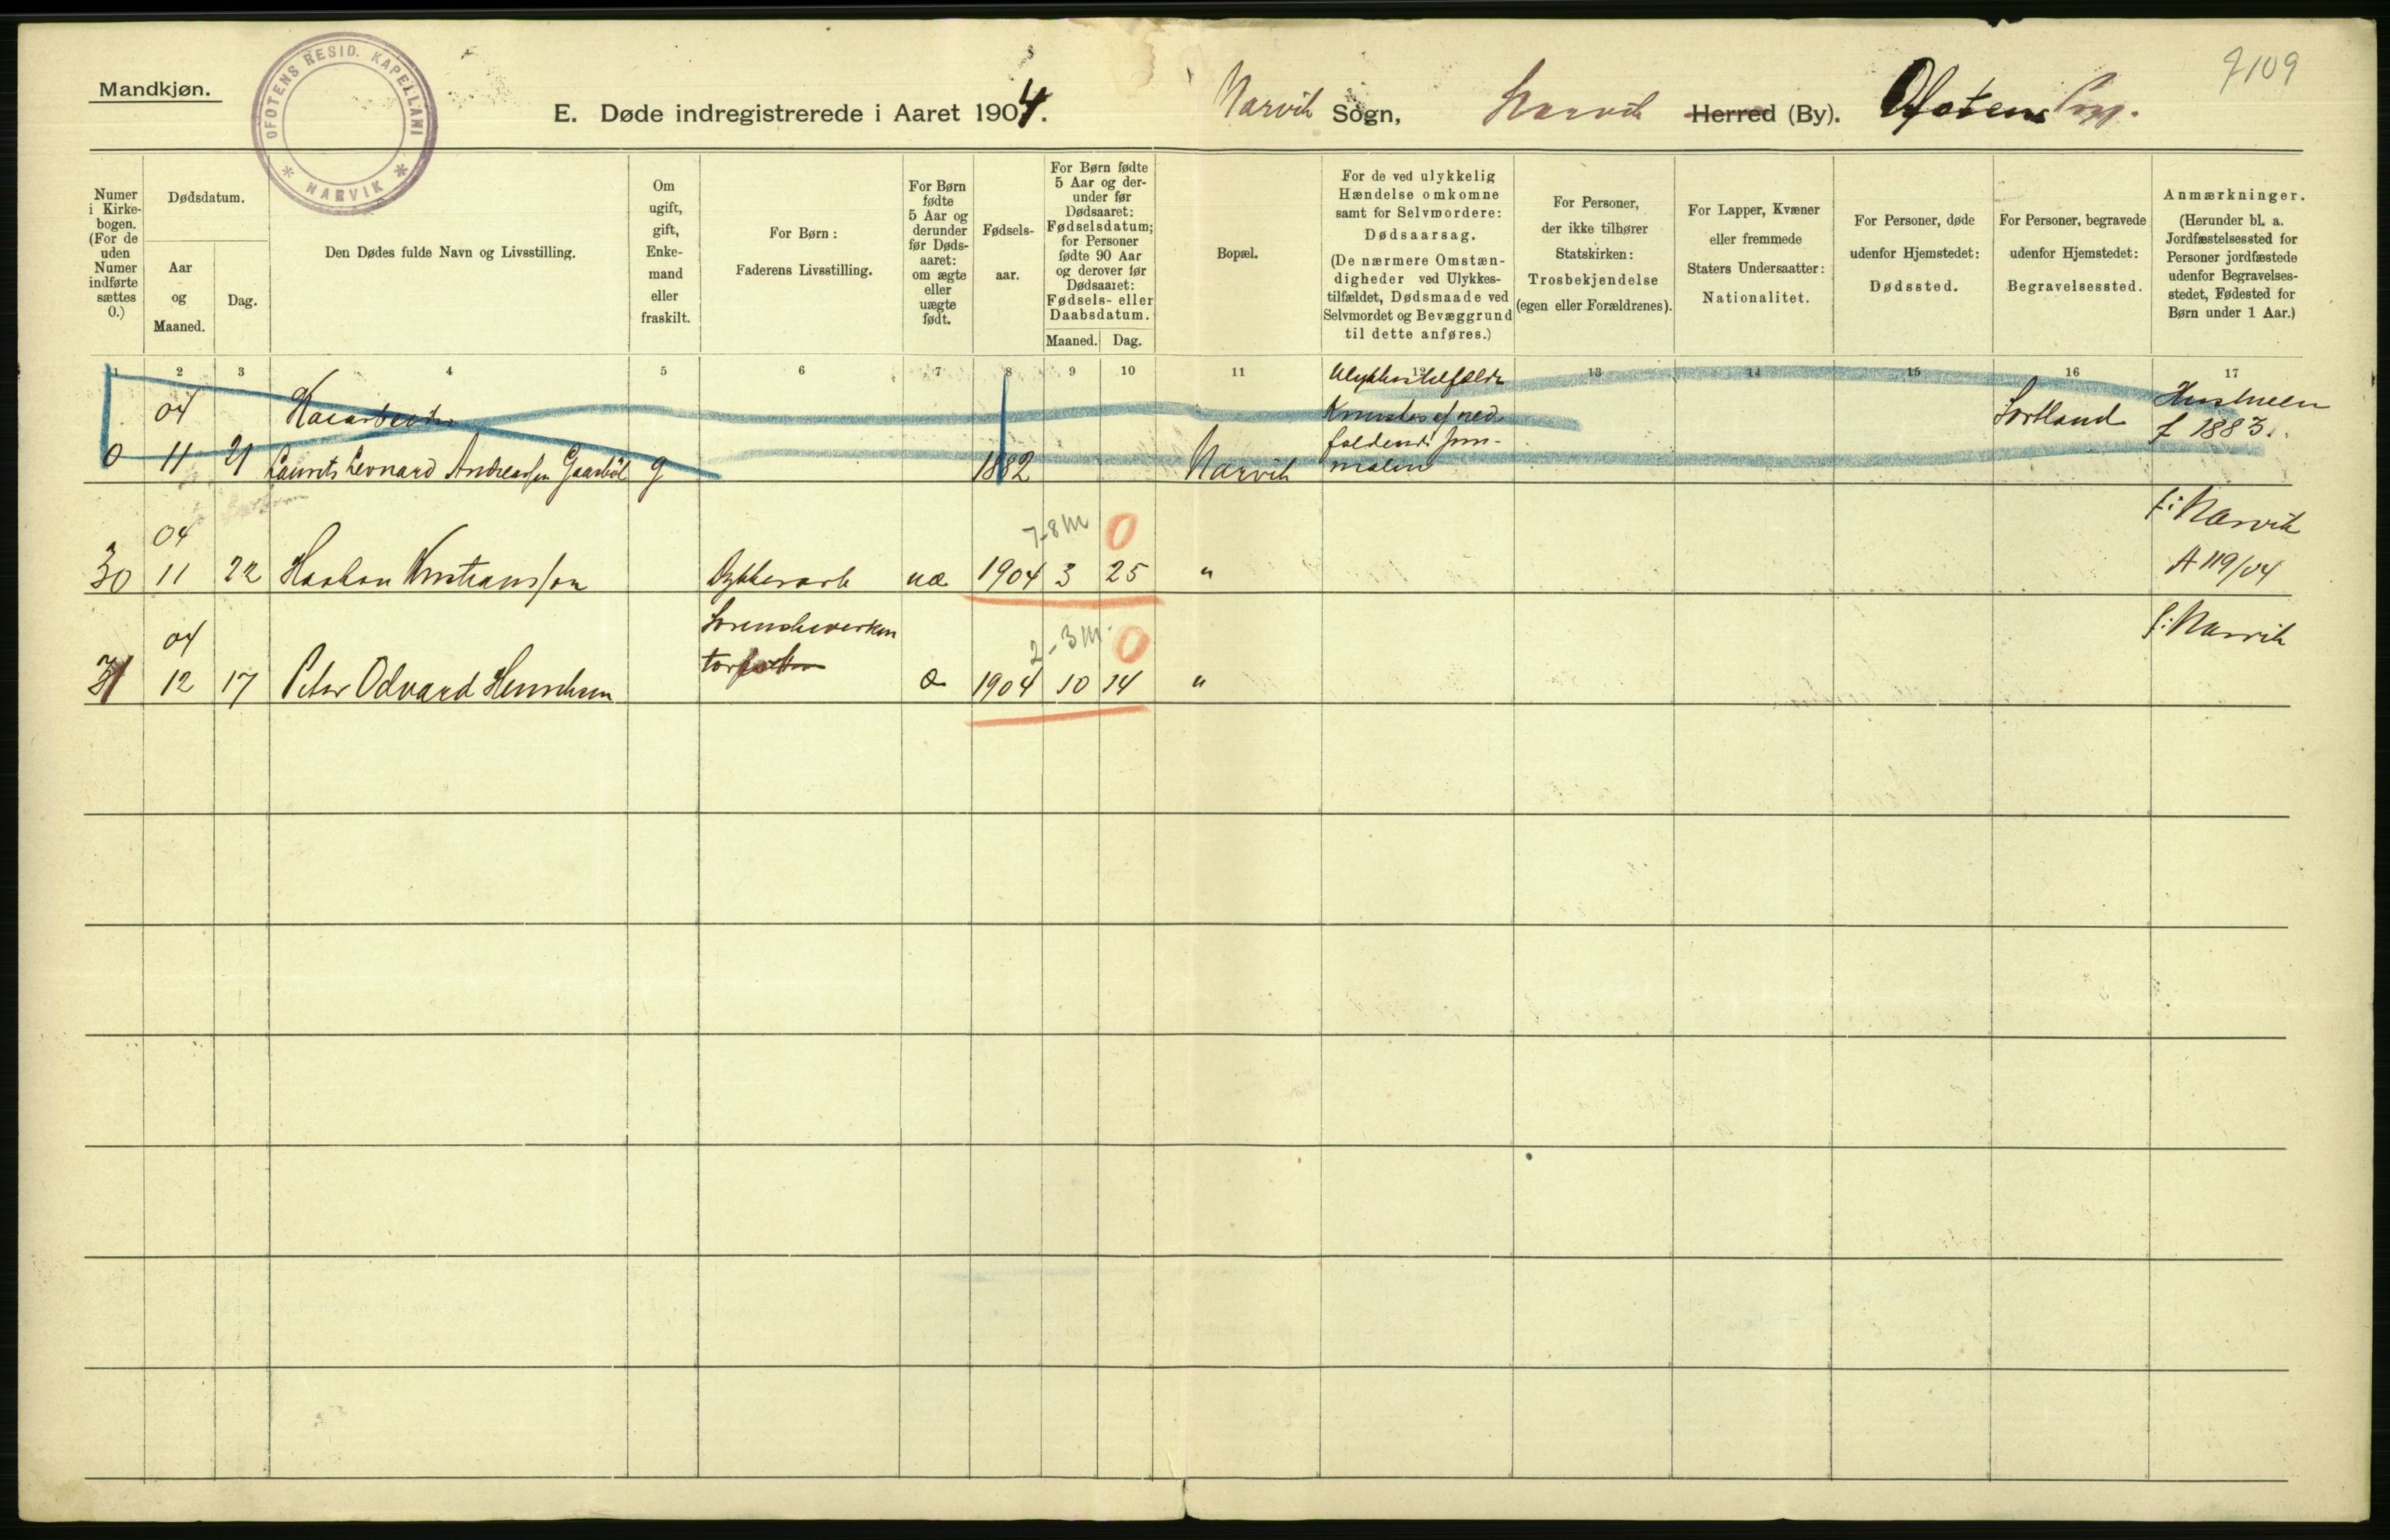 Mandkjøn.
OFOTENS RESID. KAPELLANI
* NARVIK *
E. Døde indregistrerede i Aaret 1904.
Narvik Sogn, Narvik Herred (By). Ofotens Prgj.
7109
Numer
i Kirke-
bogen.
(For de
uden
Numer
indførte
sættes
0.)
Dødsdatum.
Aar
og
Maaned.
Dag.
Den Dødes fulde Navn og Livsstilling.
Om
ugift,
gift,
Enke-
mand
eller
fraskilt.
For Børn:
Faderens Livsstilling.
For Børn
fødte
5 Aar og
derunder
før Døds-
aaret:
om ægte
eller
uægte
født.
Fødsels-
aar.
For Børn fødte
5 Aar og der-
under før
Dødsaaret:
Fødselsdatum;
for Personer
fødte 90 Aar
og derover før
Dødsaaret:
Fødsels- eller
Daabsdatum.
Maaned. Dag.
Bopæl.
For de ved ulykkelig
Hændelse omkomne
samt for Selvmordere:
Dødsaarsag.
(De nærmere Omstæn-
digheder ved Ulykkes-
tilfældet, Dødsmaade ved
Selvmordet og Bevæggrund
til dette anføres.)
For Personer,
der ikke tilhører
Statskirken:
Trosbekjendelse
(egen eller Forældrenes).
For Lapper, Kvæner
eller fremmede
Staters Undersaatter:
Nationalitet.
For Personer, døde
udenfor Hjemstedet:
Dødssted.
For Personer, begravede
udenfor Hjemstedet:
Begravelsessted.
Anmærkninger.
(Herunder bl. a.
Jordfæstelsessted for
Personer jordfæstede
udenfor Begravelses-
stedet, Fødested for
Børn under 1 Aar.)
1 2 3 4 5 6 7 8 9 10 11 12 13 14 15 16 17
04
0 11 21 Laurits Leonard Andreassen Gaarböl g 1882 Narvik
Ulykkestilfælde
Knustes af ned
faldende jern-
malm
Sortland
Hustruen
f 1883.
04 7-8 M 0 f: Narvik
30 11 22 Haakon Kristiansson uæ 1904 3 25 "
A 119/04
04 2-3 M 0 f: Narvik
31 12 17 Peter Odvard Henriksen æ 1904 10 14 "